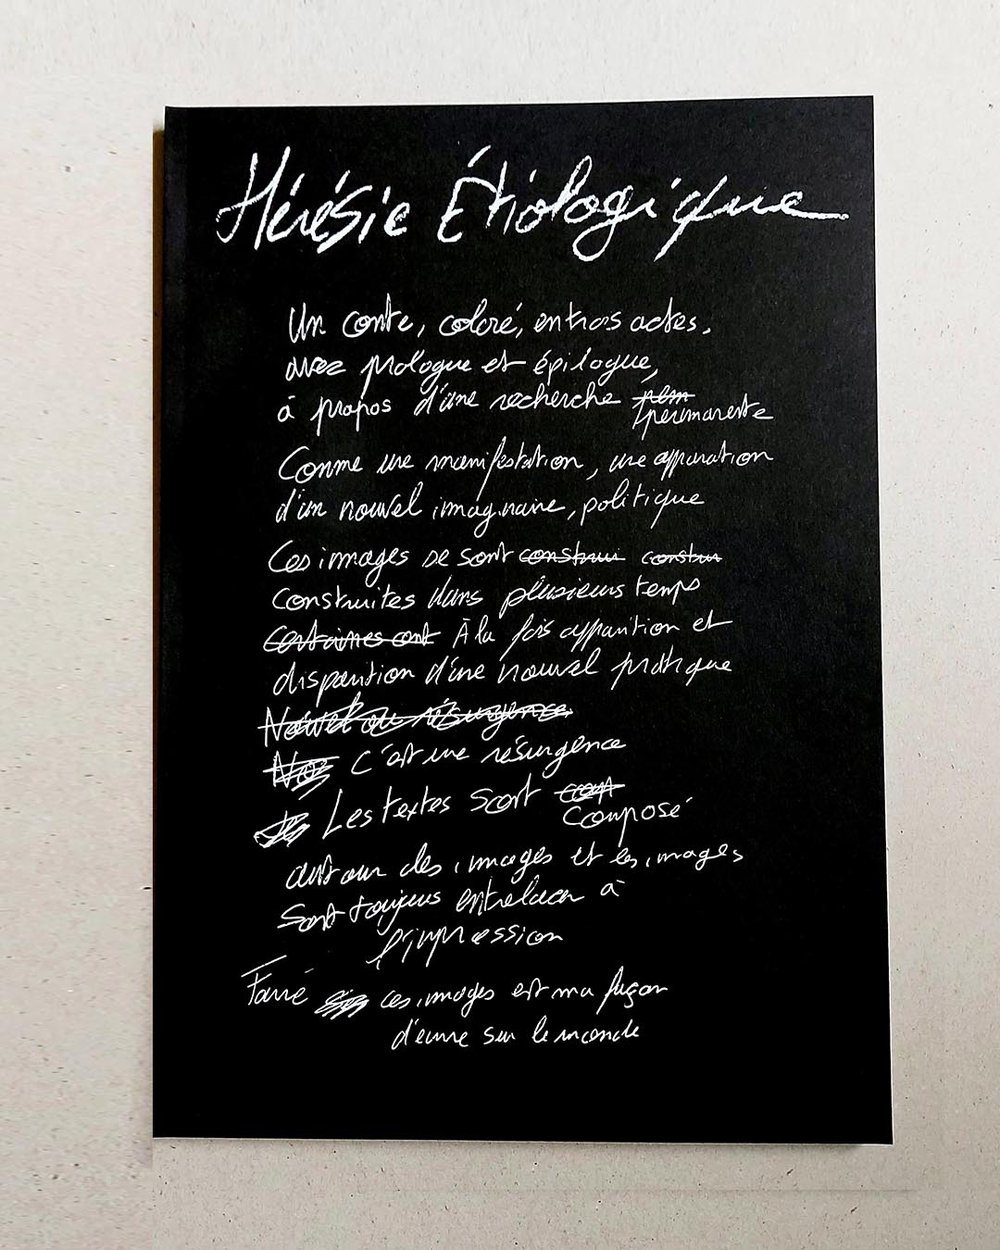 Hérésie Étiologique
Un conte, coloré, en trois actes,
avec prologue et épilogue,
à propos d'une recherche
permanente
Comme une manifestation, une apparation
d'un nouvel imaginaire, politique
Ces images se sont construi constru
construites dans plusieurs temps
Certaines sont À la fois apparition et
disparition d'une nouvel pratique
Nouvel ou résurgence
No C'est une résurgence
Les textes sont
composé
autour des images et les images
sont toujours à
l'impression
ces images est ma façon
sur le monde